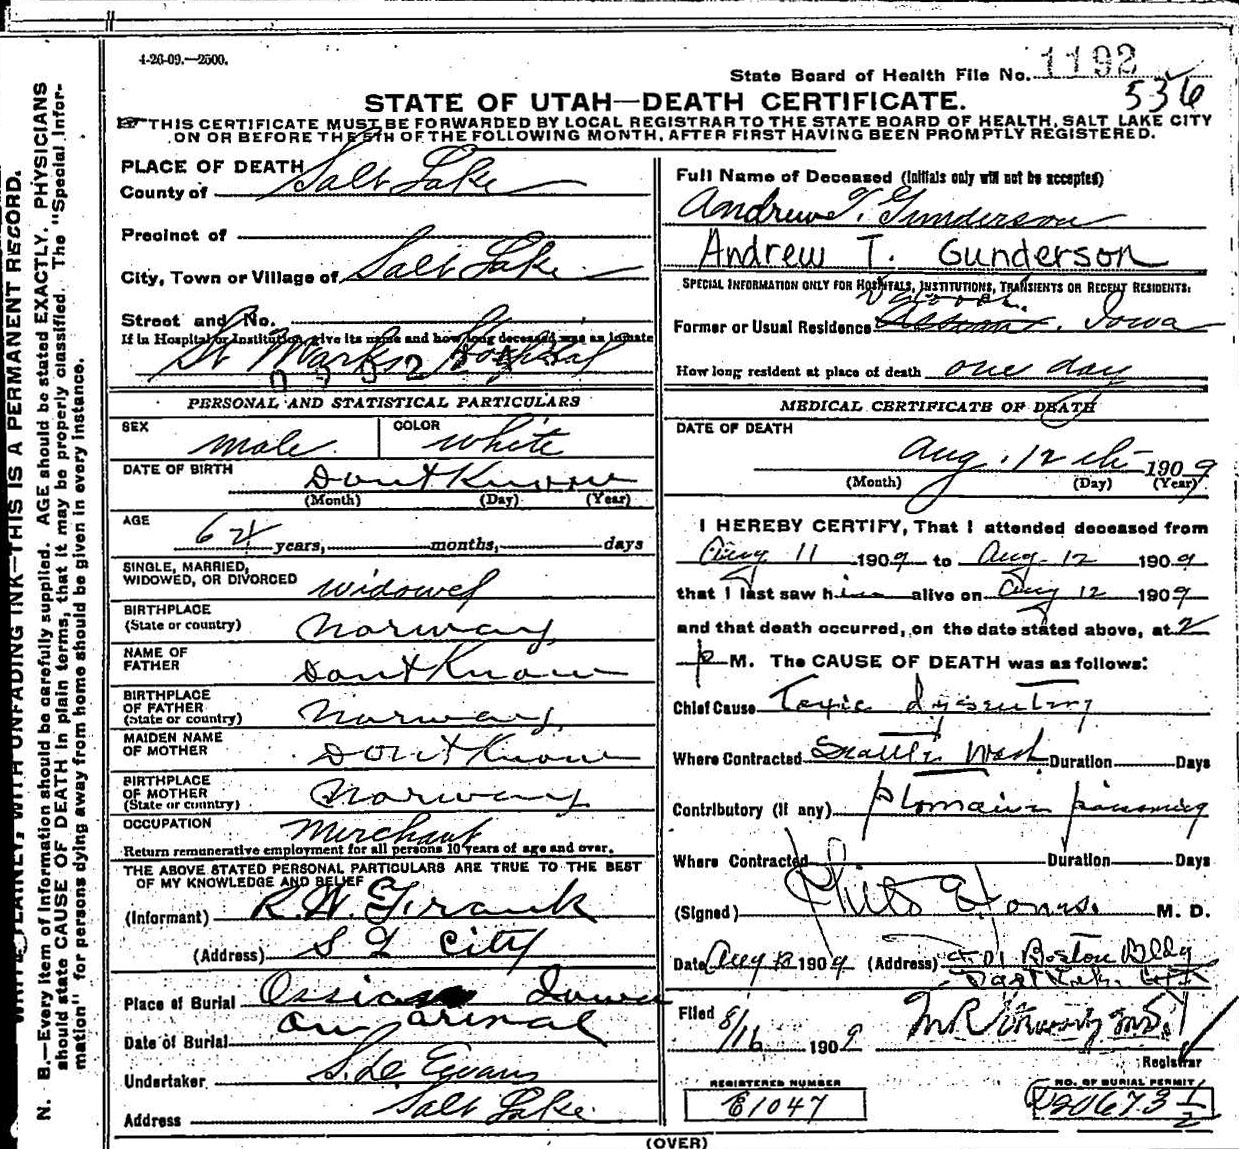 4-26-09.—2500.
State Board of Health File No. 1192
536
STATE OF UTAH—DEATH CERTIFICATE.
THIS CERTIFICATE MUST BE FORWARDED BY LOCAL REGISTRAR TO THE STATE BOARD OF HEALTH, SALT LAKE CITY
ON OR BEFORE THE 5TH OF THE FOLLOWING MONTH, AFTER FIRST HAVING BEEN PROMPTLY REGISTERED.
WRITE PLAINLY, WITH UNFADING INK—THIS IS A PERMANENT RECORD.
N. B.—Every item of Information should be carefully supplied. AGE should be stated EXACTLY. PHYSICIANS
should state CAUSE OF DEATH in plain terms, that it may be properly classified. The "Special Infor-
mation" for persons dying away from home should be given in every instance.
PLACE OF DEATH
County of Salt Lake
Precinct of
City, Town or Village of Salt Lake
Street and No.
If in Hospital or Institution, give its name and how long deceased was an inmate
St Marks Hospital
PERSONAL AND STATISTICAL PARTICULARS
SEX male COLOR white
DATE OF BIRTH Dont Know
(Month) (Day) (Year)
AGE 64 years, months, days
SINGLE, MARRIED,
WIDOWED, OR DIVORCED widowed
BIRTHPLACE
(State or country) Norway
NAME OF
FATHER Dont Know
BIRTHPLACE
OF FATHER
(State or country) Norway
MAIDEN NAME
OF MOTHER Dont Know
BIRTHPLACE
OF MOTHER
(State or country) Norway
OCCUPATION Merchant
Return remunerative employment for all persons 10 years of age and over.
THE ABOVE STATED PERSONAL PARTICULARS ARE TRUE TO THE BEST
OF MY KNOWLEDGE AND BELIEF
(Informant) R. W.
(Address) S L City
Place of Burial Ossian Iowa
Date of Burial on arival
Undertaker S. D. Evans
Address Salt Lake
Full Name of Deceased (Initials only will not be accepted)
Andrew T. Gunderson
Andrew T. Gunderson
SPECIAL INFORMATION ONLY FOR HOSPITALS, INSTITUTIONS, TRANSIENTS OR RECENT RESIDENTS:
Former or Usual Residence Iowa
How long resident at place of death one day
MEDICAL CERTIFICATE OF DEATH
DATE OF DEATH
Aug. 12th 1909
(Month) (Day) (Year)
I HEREBY CERTIFY, That I attended deceased from
Aug 11 1909 to Aug. 12 1909
that I last saw him alive on Aug 12 1909
and that death occurred, on the date stated above, at 2
p M. The CAUSE OF DEATH was as follows:
Chief Cause Toxic dysentery
Where Contracted Seattle Wash Duration Days
Contributory (if any) ptomaine poisoning
Where Contracted Duration Days
(Signed) M. D.
Date Aug 12 1909 (Address) 401 Boston Bldg
Salt Lake City
Filed 8/16 1909
Registrar
REGISTERED NUMBER
E1047
NO. OF BURIAL PERMIT
20673 1/2
(OVER)